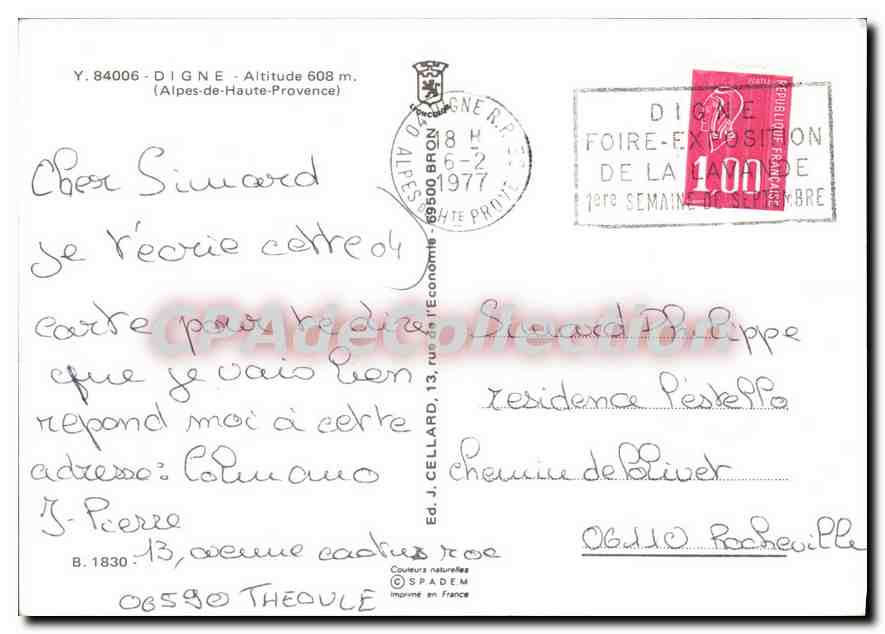 Y. 84006 - DIGNE - Altitude 608 m.
(Alpes-de-Haute-Provence)
Cher Simard
je t'écrie cette
carte pour te dire
que je vais bien
repond moi à cette
adresse:
J-Pierre
13, avenue cactus roc
06590 THEOULE
B. 1830
Ed. J. CELLARD, 13, rue de l'Economie - 69500 BRON
Couleurs naturelles
© SPADEM
Imprimé en France
04 DIGNE R.P.
18 H
6-2
1977
ALPES DE HTE PROVE
DIGNE
FOIRE-EXPOSITION
DE LA LAVANDE
1ere SEMAINE DE SEPTEMBRE
POSTES
REPUBLIQUE FRANÇAISE
1.00
Simard Philippe
residence l'estello
chemin de l'olivet
06110 Rocheville
CPAdeCollection